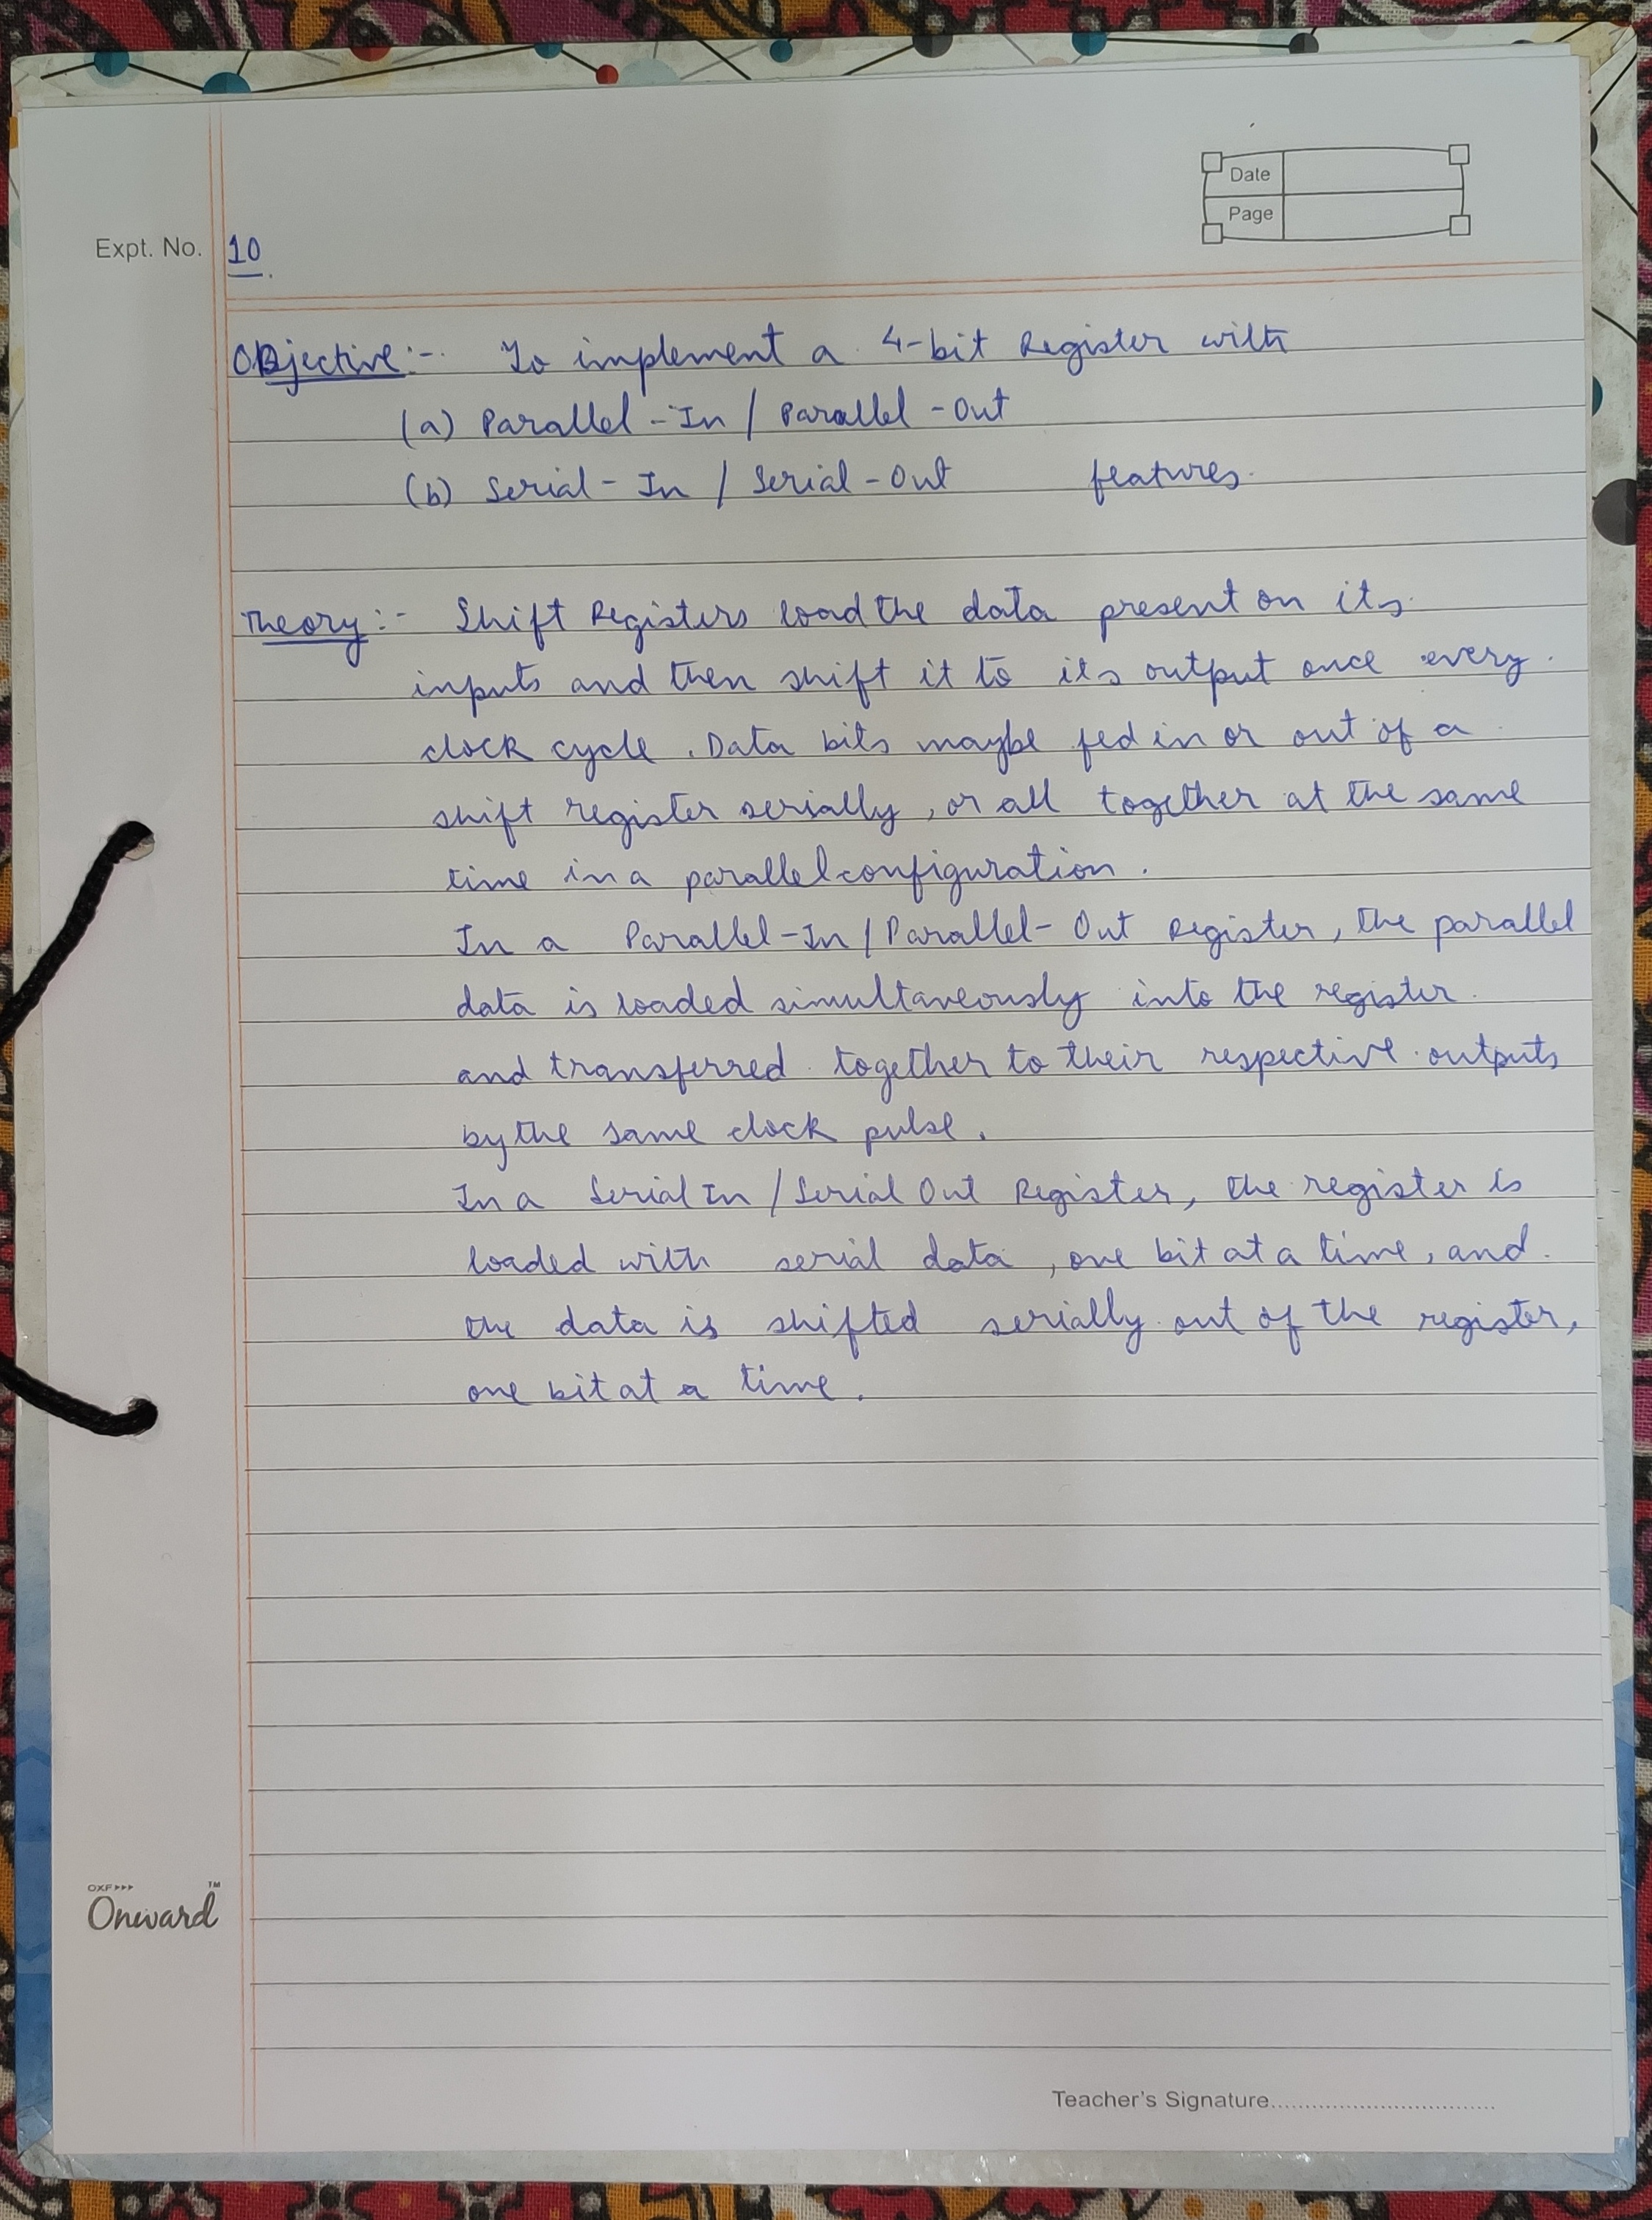 Date
Page
Expt. No. 10.
Objective:- To implement a 4-bit Register with
(a) Parallel-In / Parallel-Out
(b) Serial-In / Serial-Out features.
Theory:- Shift Registers load the data present on its
inputs and then shift it to its output once every
clock cycle. Data bits maybe fed in or out of a
shift register serially, or all together at the same
time in a parallel configuration.
In a Parallel-In/Parallel-Out Register, the parallel
data is loaded simultaneously into the register
and transferred together to their respective outputs
by the same clock pulse.
In a Serial In/Serial Out Register, the register is
loaded with serial data, one bit at a time, and
the data is shifted serially out of the register,
one bit at a time.
OXF
Onward TM
Teacher's Signature.................................